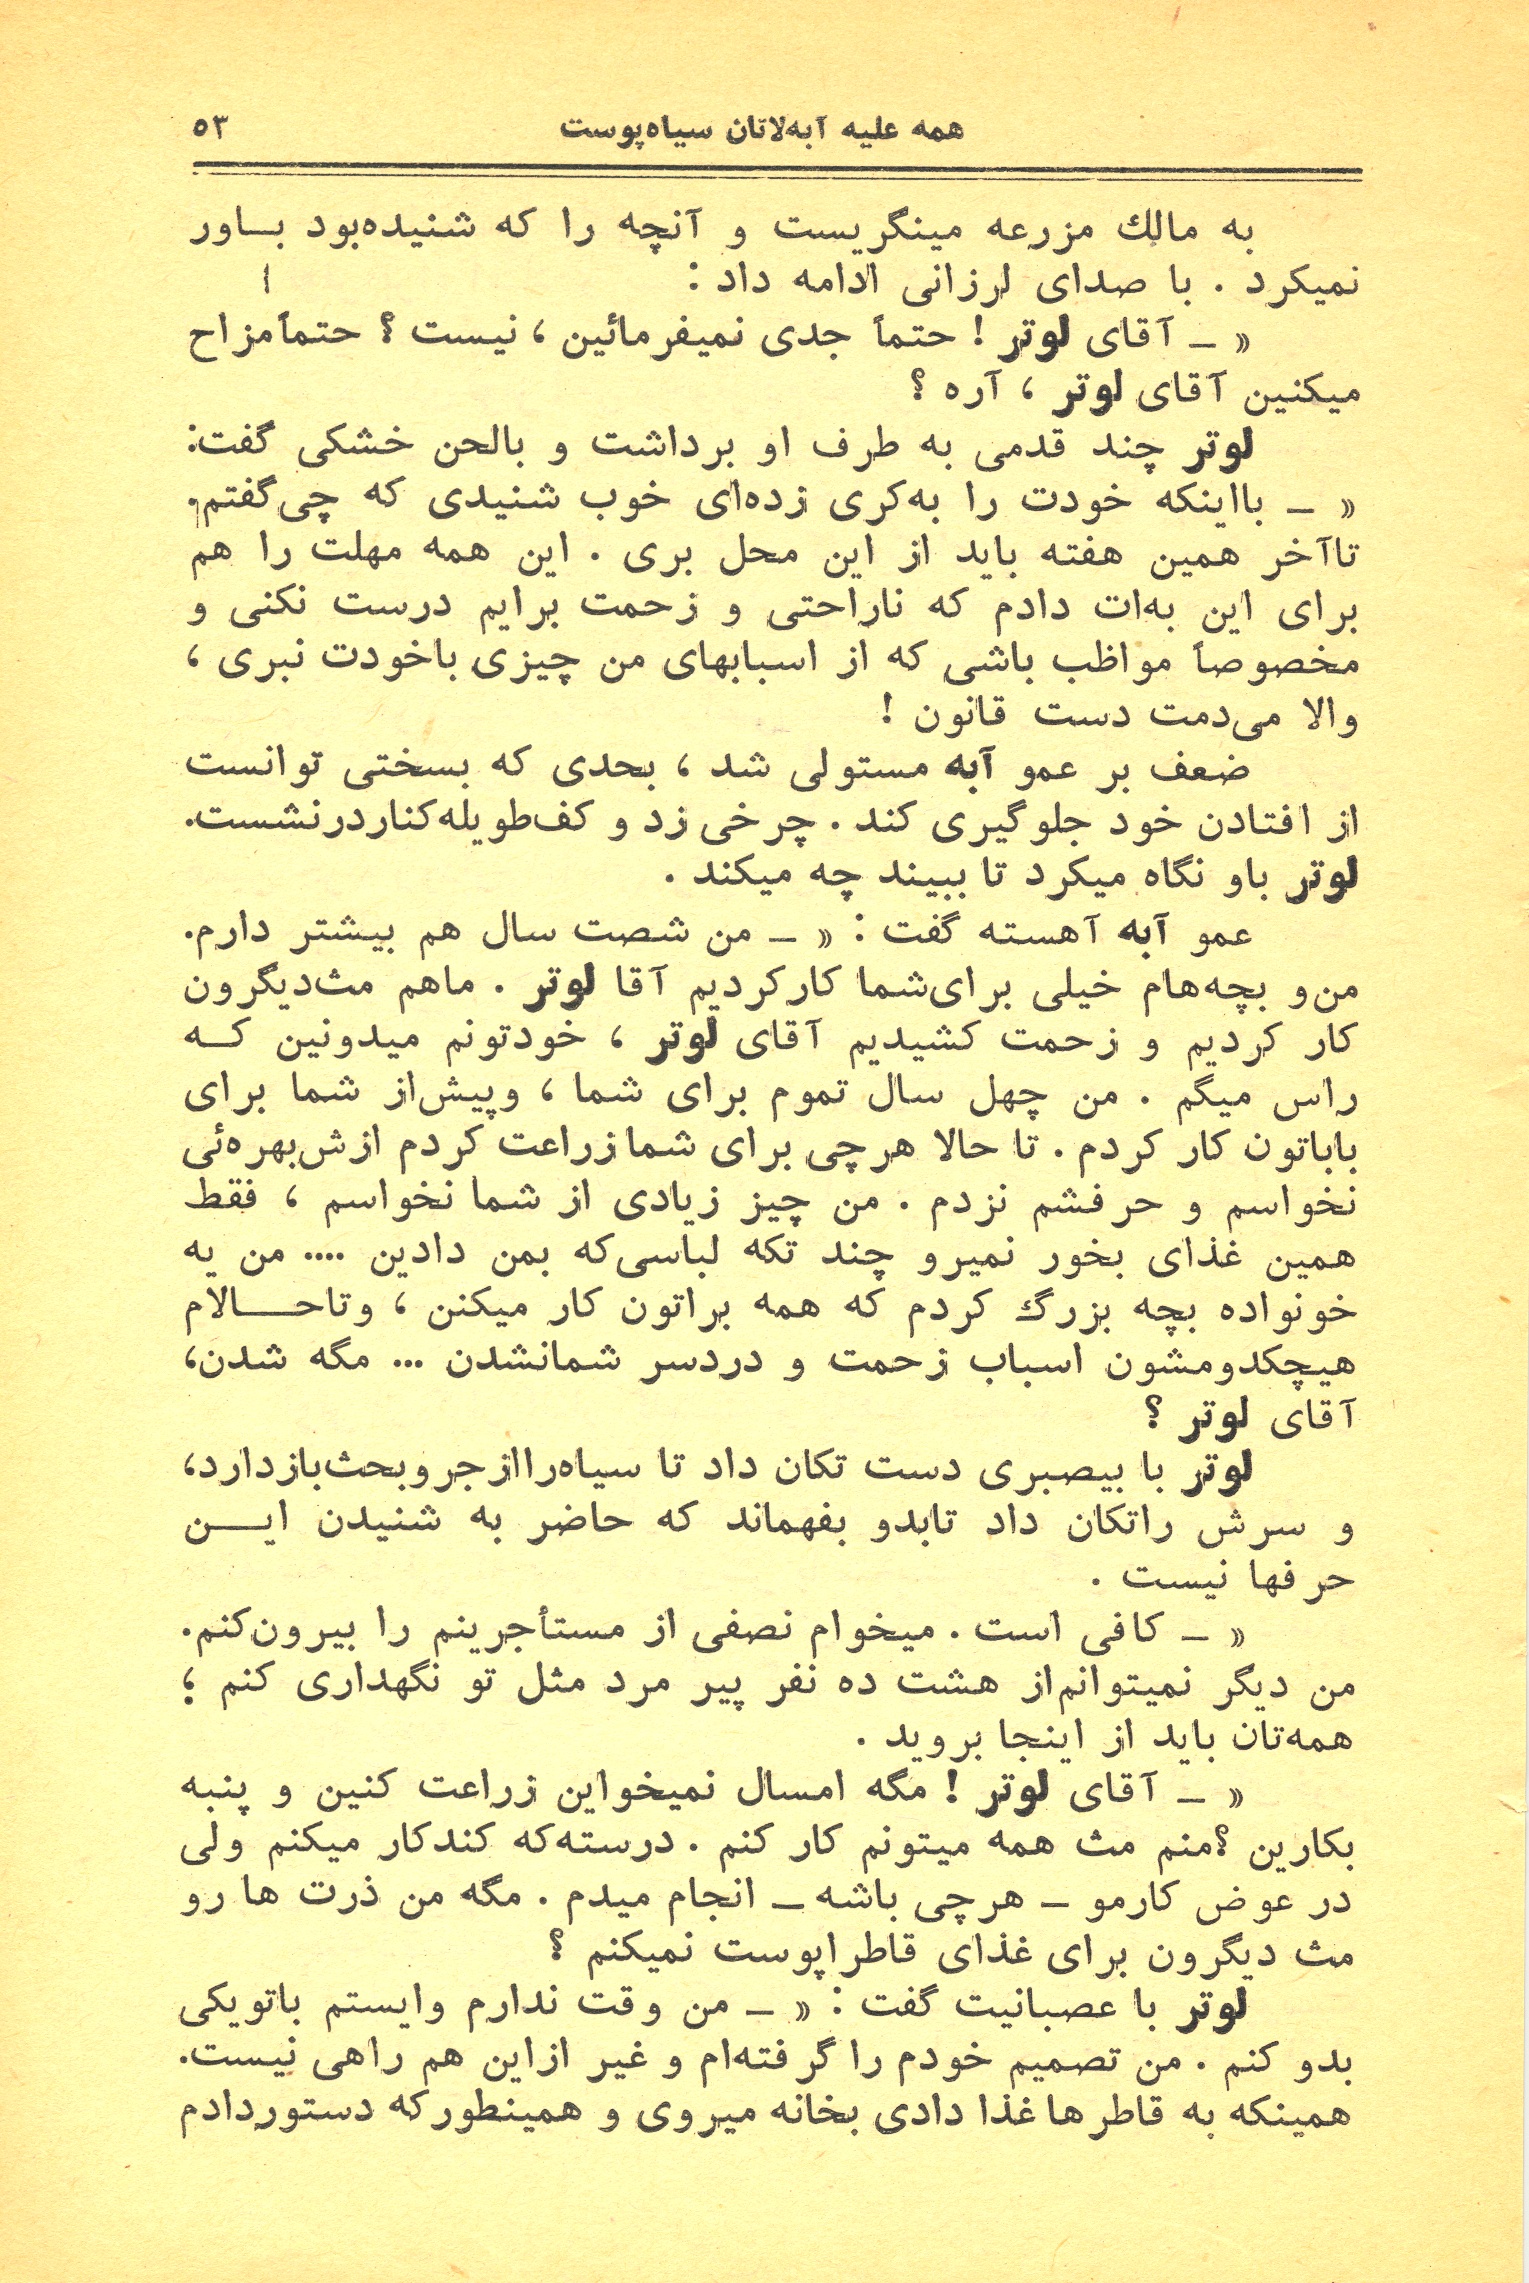 همه علیه آبه‌لاتان سیاه‌پوست ۵۳
به مالك مزرعه مینگریست و آنچه را که شنیده‌بود بـاور
نمیکرد . با صدای لرزانی ادامه داد :
« ـ آقای لوتر ! حتماً جدی نمیفرمائین ، نیست ؟ حتماً مزاح
میکنین آقای لوتر ، آره ؟
لوتر چند قدمی به طرف او برداشت و بالحن خشکی گفت:
« ـ بااینکه خودت را به‌کری زده‌ای خوب شنیدی که چی‌گفتم.
تاآخر همین هفته باید از این محل بری . این همه مهلت را هم
برای این به‌ات دادم که ناراحتی و زحمت برایم درست نکنی و
مخصوصاً مواظب باشی که از اسبابهای من چیزی باخودت نبری ،
والا می‌دمت دست قانون !
ضعف بر عمو آبه مستولی شد ، بحدی که بسختی توانست
از افتادن خود جلوگیری کند . چرخی زد و کف‌طویله‌کناردرنشست.
لوتر باو نگاه میکرد تا ببیند چه میکند .
عمو آبه آهسته گفت : « ـ من شصت سال هم بیشتر دارم.
من‌و بچه‌هام خیلی برای‌شما کارکردیم آقا لوتر . ماهم مث‌دیگرون
کار کردیم و زحمت کشیدیم آقای لوتر ، خودتونم میدونین کـه
راس میگم . من چهل سال تموم برای شما ، وپیش‌از شما برای
باباتون کار کردم . تا حالا هرچی برای شما زراعت کردم ازش‌بهره‌ئی
نخواسم و حرفشم نزدم . من چیز زیادی از شما نخواسم ، فقط
همین غذای بخور نمیرو چند تکه لباسی‌که بمن دادین .... من یه
خونواده بچه بزرگ کردم که همه براتون کار میکنن ، وتاحـالام
هیچکدومشون اسباب زحمت و دردسر شمانشدن ... مگه شدن،
آقای لوتر ؟
لوتر با بیصبری دست تکان داد تا سیاه‌رااز جروبحث‌بازدارد،
و سرش راتکان داد تابدو بفهماند که حاضر به شنیدن ایـن
حرفها نیست .
« ـ کافی است . میخوام نصفی از مستأجرینم را بیرون‌کنم.
من دیگر نمیتوانم‌از هشت ده نفر پیر مرد مثل تو نگهداری کنم ؛
همه‌تان باید از اینجا بروید .
« ـ آقای لوتر ! مگه امسال نمیخواین زراعت کنین و پنبه
بکارین ؟ منم مث همه میتونم کار کنم . درسته‌که کندکار میکنم ولی
در عوض کارمو ـ هرچی باشه ـ انجام میدم . مگه من ذرت ها رو
مث دیگرون برای غذای قاطراپوست نمیکنم ؟
لوتر با عصبانیت گفت : « ـ من وقت ندارم وایستم باتویکی
بدو کنم . من تصمیم خودم را گرفته‌ام و غیر ازاین هم راهی نیست.
همینکه به قاطرها غذا دادی بخانه میروی و همینطورکه دستوردادم